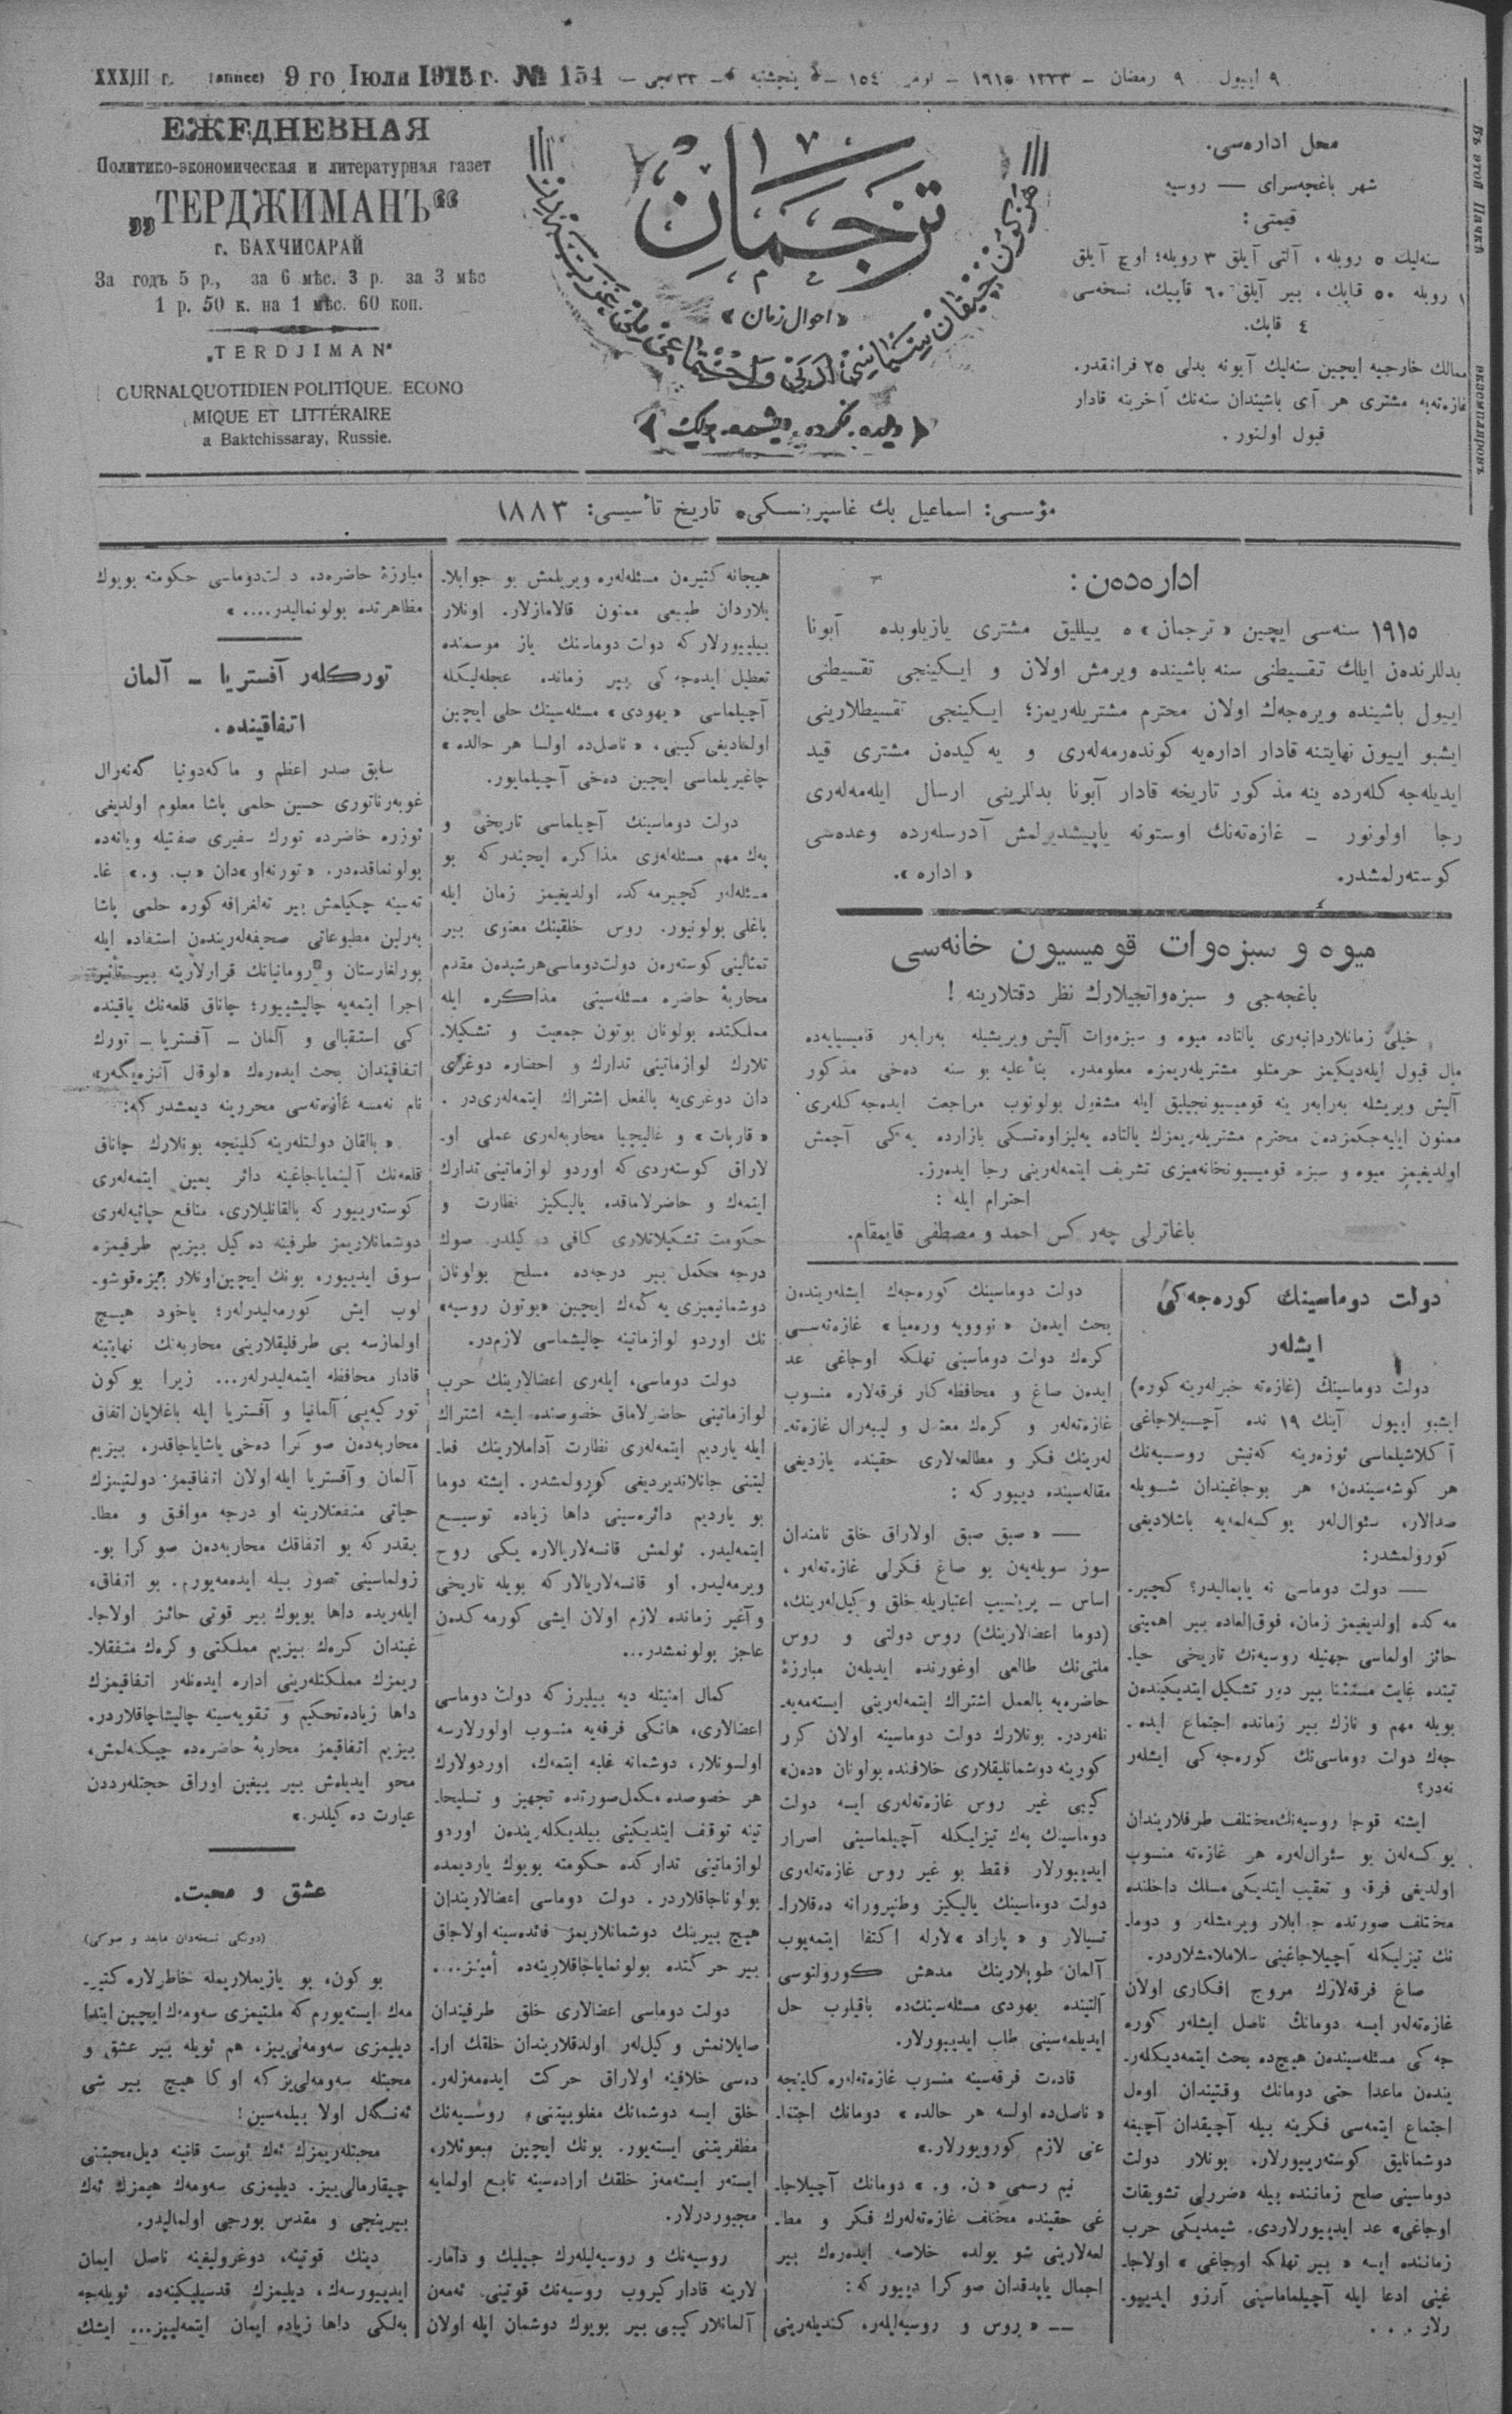 XXXIII г. (annee) 9 го Іюля 1915 г. № 154
٩ اییول ٩ رمضان - ١٣٣٣ ١٩١٥ - نومر ١٥٤ - پنجشنبه - ٣٣ نجی -
ЕЖЕДНЕВНАЯ
Политико-экономическая и литературная газет
„ТЕРДЖИМАНЪ“
г. БАХЧИСАРАЙ
За годъ 5 р., за 6 мѣс. 3 р. за 3 мѣс
1 р. 50 к. на 1 мѣс. 60 коп.
„TERDJIMAN“
OURNALQUOTIDIEN POLITIQUE. ECONO
MIQUE ET LITTÉRAIRE
a Baktchissaray, Russie.
ترجمان
«احوال زمان»
«دیلده، فکرده، ایشده، بیرلیک»
محل اداره‌سی.
شهر باغچه‌سرای — روسیه
قیمتی:
سنه‌لیك ٥ روبله، آلتی آیلق ٣ روبله؛ اوچ آیلق
١ روبله ٥٠ قاپك، بیر آیلق ٦٠ قاپیك، نسخه‌سی
٤ قاپك.
ممالك خارجیه ایچین سنه‌لیك آبونه بدلی ٢٥ فرانقدر.
غازه‌ته‌یه مشتری هر آی باشیندان سنه‌نك آخرینه قادار
قبول اولنور.
Въ этой Пачкѣ
экземпляровъ
مؤسسی: اسماعیل بك غاسپرینسکی، تاریخ تأسیسی: ١٨٨٣
اداره‌دەن:
١٩١٥ سنه‌سی ایچین «ترجمان»ه ییللیق مشتری یازیلوبده آبونا
بدللرندەن ایلك تقسیطنی سنه باشینده ویرمش اولان و ایکینجی تقسیطنی
اییول باشینده ویره‌جەك اولان محترم مشتریله‌ریمز؛ ایکینجی تقسیطلارینی
ایشبو اییون نهایتنه قادار اداره‌یه کوندەرمەلەری و یەکیدەن مشتری قید
ایدیله‌جەکلەرده ینه مذکور تاریخه قادار آبونا بدللرینی ارسال ایلەمەلەری
رجا اولونور - غازەتەنك اوستونه یاپیشدیرلمش آدرسلەرده وعدەسی
کوستەرلمشدر. «اداره».
میوه و سبزەوات قومیسیون خانەسی
باغچەجی و سبزەواتجیلارك نظر دقتلارینه!
خیلی زمانلاردانبەری یالتاده میوه و سبزەوات آلیش ویریشیله بەرابەر قامیسیایەده
مال قبول ایلەدیکیمز حرمتلو مشتریلەریمزه معلومدر. بنأ علیه بو سنه دەخی مذکور
آلیش ویریشله بەرابەر ینه قومیسیونجیلیق ایله مشغول بولونوب مراجعت ایدەجەکلەری
ممنون ایلیەجکمزدەن محترم مشتریلەریمزك یالتاده یەلیزاوەتسکی بازارده یەکی آچمش
اولدیغیمز میوه و سبزه قومیسیونخانەمیزی تشریف ایتمەلەرینی رجا ایدەرز.
احترام ایله:
باغاترلی چەرکس احمد و مصطفی قایمقام.
دولت دوماسینك کورەجەکی
ایشلەر
دولت دوماسینك (غازەته خبرلەرینه کوره)
ایشبو اییول آینك ١٩ نده آچیلاجاغی
آکلاشیلماسی ئوزەرینه کەنیش روسیەنك
هر کوشەسیندەن؛ هر بوجاغیندان شویله
صدالار، سئوال‌لەر یوکسەلمەیه باشلادیغی
کورولمشدر:
— دولت دوماسی نه یاپمالیدر؟ کچیر-
مەکده اولدیغیمز زمان، فوق‌العاده بیر اهمیتی
حائز اولماسی جهتیله روسیەنك تاریخی حیا-
تینده غایت مستثنا بیر دور تشکیل ایتدیکیندەن
بویله مهم و نازك بیر زمانده اجتماع ایدە-
جەك دولت دوماسی‌نك کورەجەکی ایشلەر
نەدر؟
ایشته قوجا روسیەنك‌مختلف طرفلاریندان
یوکسەلەن بو سئوال‌لەره هر غازەته منسوب
اولدیغی فرقه و تعقیب ایتدیکی مسلك داخلنده
مختلف صورتده جوابلار ویرمشلەر و دوما-
نك تیزلیکله آچیلاجاغینی سلاملامشلاردر.
صاغ فرقەلارك مروج افکاری اولان
غازەتەلەر ایسه دومانك ناصل ایشلەر کورە
جەکی مسئلەسیندەن هیچ‌ده بحث ایتمەدیکلەر-
یندەن ماعدا حتی دومانك وقتیندان اول
اجتماع ایتمەسی فکرینه بیله آچیقدان آچیغه
دوشمانلیق کوستەرییورلار. بونلار دولت
دوماسینی صلح زماننده بیله «ضررلی تشویقات
اوجاغی» عد ایدییورلاردی. شیمدیکی حرب
زماننده ایسه «بیر تهلکه اوجاغی» اولاجا-
غینی ادعا ایله آچیلماماسینی آرزو ایدییو-
رلار ...
دولت دوماسینك کورەجەك ایشلەریندەن
بحث ایدەن «نوویه ورەمیا» غازەتەسی
کرەك دولت دوماسینی تهلکه اوجاغی عد
ایدەن صاغ و محافظەکار فرقەلاره منسوب
غازەتەلەر و کرەك معتدل و لیبەرال غازەتە-
لەرینك فکر و مطالعەلاری حقینده یازدیغی
مقالەسینده دییورکه:
— «صیق صیق اولاراق خلق نامندان
سوز سویلەیەن بو صاغ فکرلی غازەتەلەر،
اساس - پرینسیپ اعتباریله خلق وکیل‌لەرینك،
(دوما اعضالارینك) روس دولتی و روس
ملتی‌نك طالعی اوغورنده ایدیلەن مبارزۀ
حاضرەیه بالعمل اشتراك ایتمەلەرینی ایستەمەیە-
نلەردر. بونلارك دولت دوماسینه اولان کور
کورینه دوشمانلیقلاری خلافنده بولونان «دەن»
کیبی غیر روس غازەتەلەری ایسه دولت
دوماسینك پەك تیزلیکله آچیلماسینی اصرار
ایدییورلار فقط بو غیر روس غازەتەلەری
دولت دوماسینك یالیکیز وطنپرورانه دەقلارا-
تسیالار و «پاراد»لارله اکتفا ایتمەیوب
آلمان طوپلارینك مدهش کورولتوسی
آلتینده یهودی مسئلەسینك‌ده باقیلوب حل
ایدیلمەسینی طلب ایدییورلار.
قادەت فرقەسینه منسوب غازەتەلەره کلینجه
«ناصل‌ده اولسه هر حالده» دومانك اجتما-
عنی لازم کورویورلار.»
نیم رسمی «ن. و.» دومانك آچیلاجا-
غی حقینده مختلف غازەتەلەرك فکر و مطا-
لعەلارینی شو یولده خلاصه ایدەرەك بیر
اجمال یاپدقدان صوکرا دییورکه:
— «روس و روسیەلیلەر، کندیلەرینی
هیجانه کتیرەن مسئلەلەره ویریلمش بو جوابلا-
بلاردان طبیعی ممنون قالامازلار. اونلار
بیلییورلارکه دولت دوماسنك یاز موسمنده
تعطیل ایدەجەکی بیر زمانده عجلەلیکله
آچیلماسی «یهودی» مسئلەسینك حلی ایچین
اولمادیغی کیبی، «ناصل‌ده اولسا هر حالده»
چاغیریلماسی ایچین دەخی آچیلمایور.
دولت دوماسینك آچیلماسی تاریخی و
پەك مهم مسئلەلەری مذاکره ایچیندرکه بو
مسئلەلەر کچیرمەکده اولدیغیمز زمان ایله
باغلی بولونیور. روس خلقینك معنوی بیر
تمثالینی کوستەرەن دولت‌دوماسی‌هرشیدەن مقدم
محاربۀ حاضره مسئلەسینی مذاکره ایله
مملکتده بولونان بوتون جمعیت و تشکیلا-
تلارك لوازماتینی تدارك و احضاره دوغری
دان دوغری‌یه بالفعل اشتراك ایتمەلەری‌در.
«قارپات» و غالیچیا محاربەلەری عملی او-
لاراق کوستەردی‌که اوردو لوازماتینی تدارك
ایتمەك و حاضرلاماقده یالیکیز نظارت و
حکومت تشکیلاتلاری کافی دەکیلدر. صوك
درجه مکمل بیر درجەده مسلح بولونان
دوشمانیمیزی یەکمەك ایچین «بوتون روسیه»
نك اوردو لوازماتینه چالیشماسی لازم‌در.
دولت دوماسی، ایلەری اعضالارینك حرب
لوازماتینی حاضرلاماق خصوصنده ایشه اشتراك
ایله یاردیم ایتمەلەری نظارت آداملارینك فعا-
لیتنی جانلاندیردیغی کورولمشدر. ایشته دوما
بو یاردیم دائرەسینی داها زیاده توسیع
ایتمەلیدر. ئولمش قانسەلاریالاره یکی روح
ویرمەلیدر. او قانسەلاریالارکه بویله تاریخی
و آغیر زمانده لازم اولان ایشی کورمەکدەن
عاجز بولونمشدر...
کمال امنیتله دیه بیلیرزکه دولت دوماسی
اعضالاری، هانکی فرقەیه منسوب اولورلارسه
اولسونلار، دوشمانه غلبه ایتمەك، اوردولارك
هر خصوصده مکمل‌صورتده تجهیز و تسلیحا-
تینه توقف ایتدیکینی بیلدیکلەریندەن اوردو
لوازماتینی تدارکده حکومته بویوك یاردیمده
بولوناجاقلاردر. دولت دوماسی اعضالاریندان
هیچ بیرینك دوشمانلاریمز فائدەسینه اولاجاق
بیر حرکتده بولونمایاجاقلارینه‌ده أمینز...
دولت دوماسی اعضالاری خلق طرفیندان
صایلانمش وکیل‌لەر اولدقلاریندان خلقك ارا-
دەسی خلافینه اولاراق حرکت ایدەمەزلەر.
خلق ایسه دوشمانك مغلوبیتنی، روسیەنك
مظفریتنی ایستەیور. بونك ایچین مبعوثلار،
ایستەر ایستەمەز خلقك ارادەسینه تابع اولمایه
مجبوردرلار.
روسیەنك و روسیەلیلەرك جیلیك و دامار-
لارینه قادار کیروب روسیەنك قوتینی ئەمەن
آلمانلار کیبی بیر بویوك دوشمان ایله اولان
مبارزۀ حاضرەده دولت‌دوماسی حکومته بویوك
مظاهرتده بولونمالیدر....»
تورکلەر آفستریا - آلمان
اتفاقینده.
سابق صدر اعظم و ماکەدونیا گەنەرال
غوبەرناتوری حسین حلمی پاشا معلوم اولدیغی
ئوزره حاضرده تورك سفیری صفتیله ویانەده
بولونماقدەدر. «تورنەاو»دان «ب. و.» غا-
تەسینه چکیلمش بیر تەلغرافه کوره حلمی پاشا
بەرلین مطبوعاتی صحیفەلەریندەن استفاده ایله
بولغارستان و رومانیانك قرارلارینه بیر تأثیر
اجرا ایتمەیه چالیشییور؛ چاناق قلعەنك یاقینده
کی استقبالی و آلمان - آفستریا - تورك
اتفاقیندان بحث ایدەرەك «لوقال آنزەیگەر»
نام نەمسه غازەتەسی محررینه دیمشدرکه:
«بالقان دولتلەرینه کلینجه بونلارك چاناق
قلعەنك آلینمایاجاغینه دائر یمین ایتمەلەری
کوستەرییورکه بالقانلیلاری، منافع حیاتیەلەری
دوشمانلاریمز طرفینه دەکیل بیزیم طرفیمزه
سوق ایدییور، بونك ایچین‌اونلار بیزه‌قوشو-
لوب ایش کورمەلیدرلەر؛ یاخود هیچ
اولمازسه بی طرفلیقلارینی محاربەنك نهایتینه
قادار محافظه ایتمەلیدرلەر... زیرا بوکون
تورکیەیی آلمانیا و آفستریا ایله باغلایان‌اتفاق
محاربەدەن صوکرا دەخی یاشایاجاقدر، بیزیم
آلمان و آفستریا ایله‌اولان اتفاقیمز، دولتیمزك
حیاتی منفعتلارینه او درجه موافق و مطا-
بقدرکه بو اتفاقك محاربەدەن صوکرا بو-
زولماسینی تصور بیله ایدەمەیورم. بو اتفاق،
ایلەریده داها بویوك بیر قوتی حائز اولاجا-
غیندان کرەك بیزیم مملکتی و کرەك متفقلا-
ریمزك مملکتلەرینی اداره ایدەنلەر اتفاقیمزك
داها زیاده‌تحکیم و تقویەسینه چالیشاچاقلاردر.
بیزیم اتفاقیمز محاربۀ حاضرەده چیکنەلمش،
محو ایدیلمش بیر ییغین اوراق حجتلەرددن
عبارت دەکیلدر.»
عشق و محبت.
(دونکی نسخەدان مابعد و صوکی)
بوکون، بو یازیملاریمله خاطرلاره کتیر-
مەك ایستەیورم‌که ملتیمزی سەومەك ایچین ابتدا
دیلیمزی سەومەلی‌ییز، هم ئویله بیر عشق و
محبتله سەومەلی‌یزکه اوکا هیچ بیر شی
ئەنگەل اولا بیلمەسین!
محبتلەریمزك ئەك ئوست قاتینه دیل‌محبتنی
چیقارمالی‌ییز. دیلیمزی سەومەك هیمزك ئەك
بیرینجی و مقدس بورجی اولمالیدر.
دینك قوتینه، دوغرولیغینه ناصل ایمان
ایدییورسەك، دیلیمزك قدسیلیکینەده ئویلەجه
بەلکی داها زیاده ایمان ایتمەلیییز... ایشك